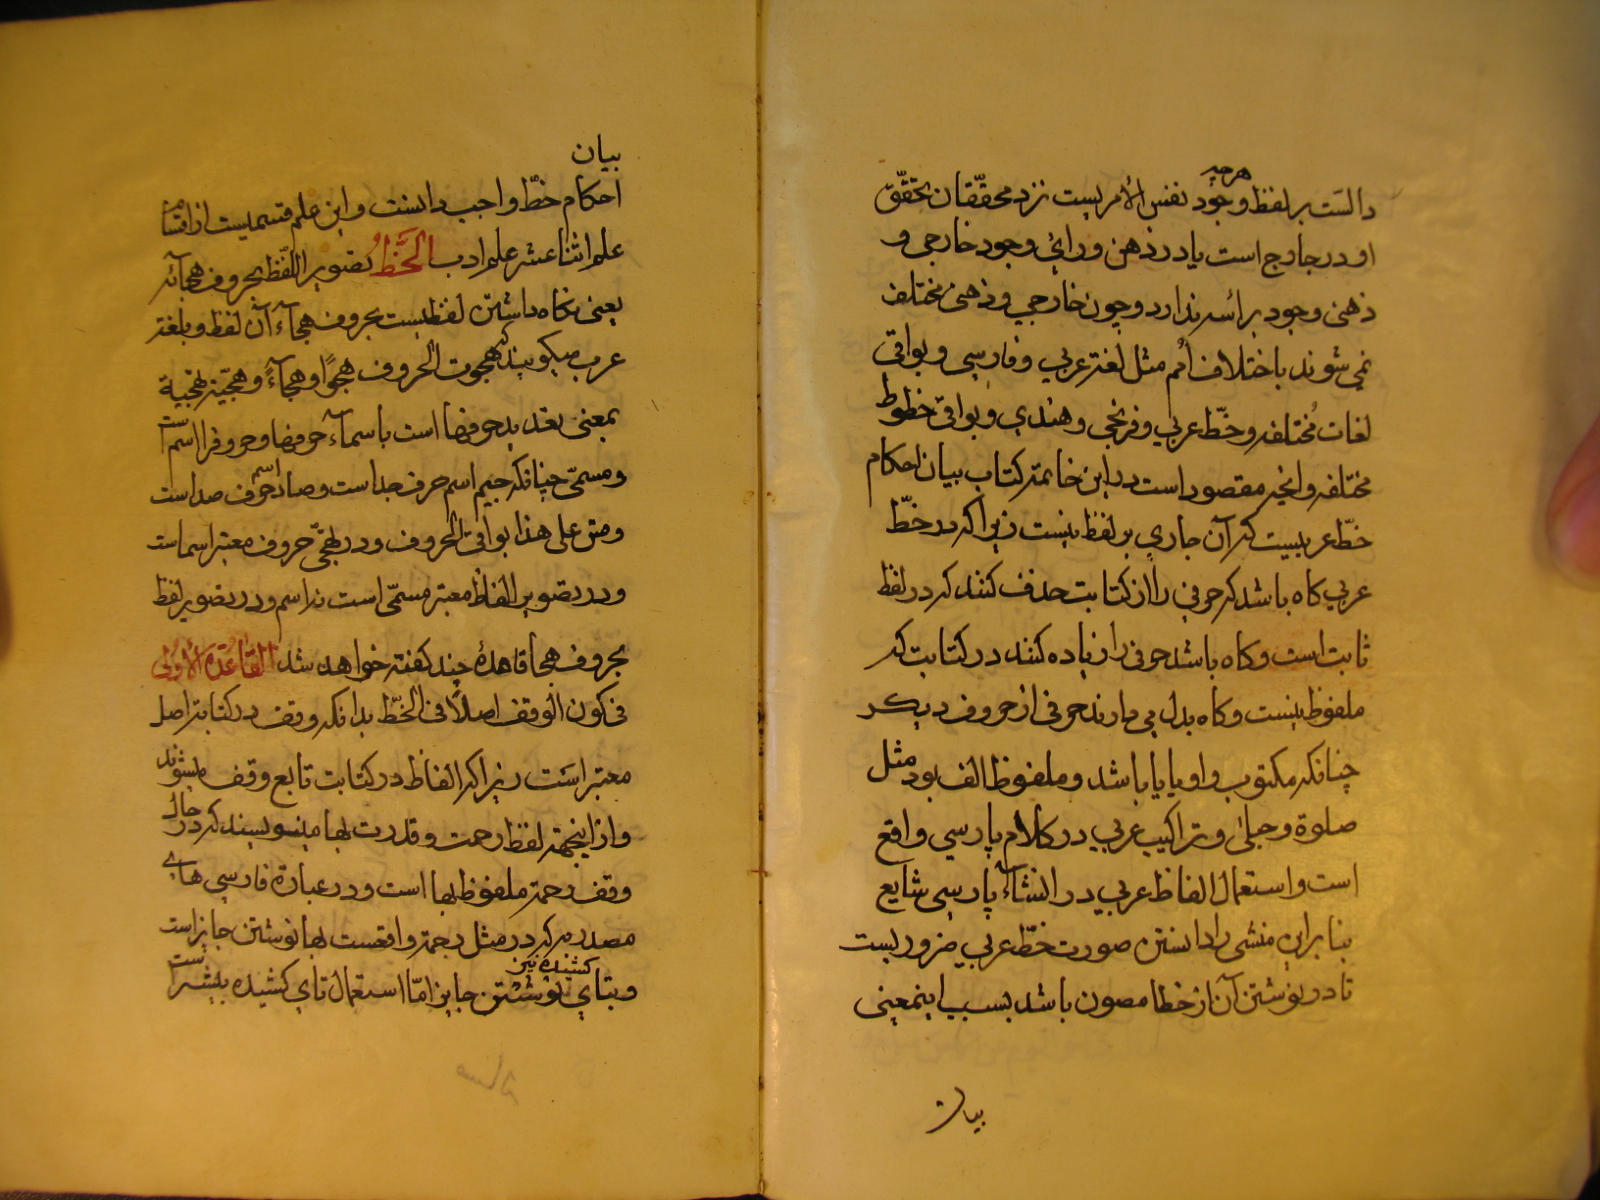 هرچه
دالست بر لفظ وجود نفس الأمریست نزد محققان تحقّق
او در خارج است یا در ذهن ورائ وجود خارجی و
ذهنی وجود برأسه ندارد و چون خارجی و ذهنی مختلف
نمی شوند باختلاف اُمم مثل لغة عربی و فارسی و بواقی
لغات مُختلفه و خطّ عربی و فرنجی و هندی و بواقی خطوط
مختلفه وانچه مقصود است در این خاتمه کتاب بیان احکام
خطّ عربیست که آن جاری بر لفظ نیست زیرا که در خطّ
عربی کاه باشد که حرفی را از کتابت حذف کنند که در لفظ
ثابت است و کاه باشد حرفی را زیاده کنند در کتابت که
ملفوظ نیست و کاه بدل می دارند حرفی از حروف دیکر
چنانکه مکتوب واو یا یا باشد و ملفوظ الف بود مثل
صلوة و حبلی و تراکیب عربی در کلام پارسی واقع
است و استعمال الفاظ عربی در انشاآء پارسی شایع
بنابراین منشی را دانستن صورت خطّ عربی ضروریست
تا در نوشتن آن از خطا مصون باشد بسبب اینمعنی
بیان
بیان
احکام خطّ واجب دانست و این علم قسمیست از اقسام
علم اثنا عشر علم ادب الخَّطُ تصویر اللّفظ بحروف هجائه
یعنی نکاه داشتن لفظیست بحروف هجآء آن لفظ و بلغة
عرب میکویند که هجوت الحروف هجوًا و هجآءً و هجّیته تهجیة
بمعنی تعدید حرفها است باسمآء حرفها و حروف را اسم است
و مسمّی چنانکه جیم اسم حرف جداست و صاد اسم حرف صداست
و قس علی هذا بواقی الحروف و در تهجّی حروف معتبر اسماست
و در تصویر الفاظ معتبر مسمّی است نه اسم و در تصویر لفظ
بحروف هجا قاعدهٔ چند کفته خواهد شد القاعدة الأولی
فی کون الوقف اصلاً فی الخطّ بدانکه وقف در کتابة اصل
معتبر است زیرا که الفاظ در کتابت تابع وقف میشوند
و از اینجهة لفظ رحمت و قدرت بها مینویسند که در حال
وقف رحمة ملفوظ بها است و در عبارة فارسی های
مصدر مرکه در مثل رحمة واقعست بها نوشتن جایز است
و بتای کشیده نیز نوشتن جایز امّا استعمال تای کشیده بیشتر است